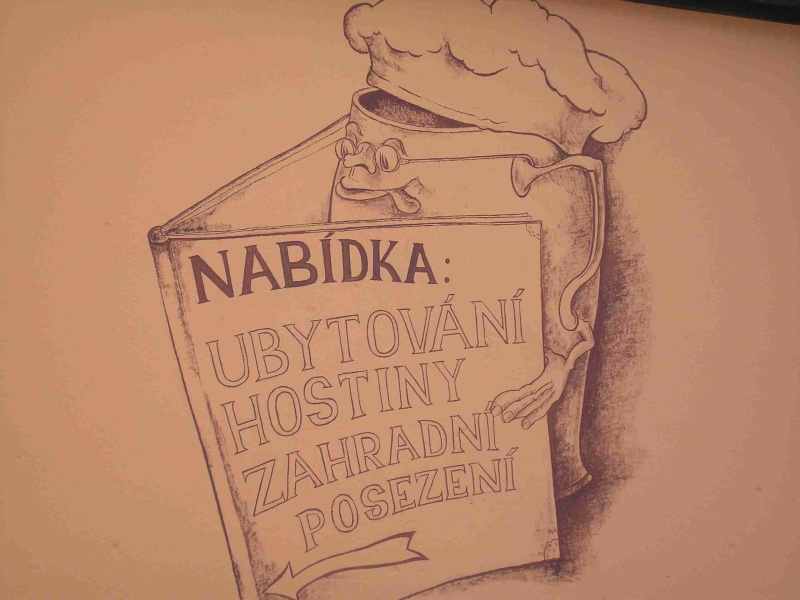 NABÍDKA:
UBYTOVÁNÍ
HOSTINY
ZAHRADNÍ
POSEZENÍ